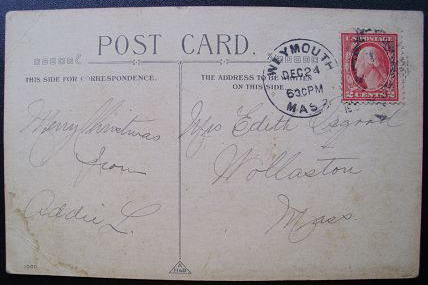 POST CARD.
THIS SIDE FOR CORRESPONDENCE.
THE ADDRESS TO BE WRITTEN
ON THIS SIDE
WEYMOUTH
DEC 24
630PM
MASS.
U.S. POSTAGE
2 CENTS 2
Merry Christmas
from
Addie L.
Mrs Edith Osgood
Wollaston
Mass.